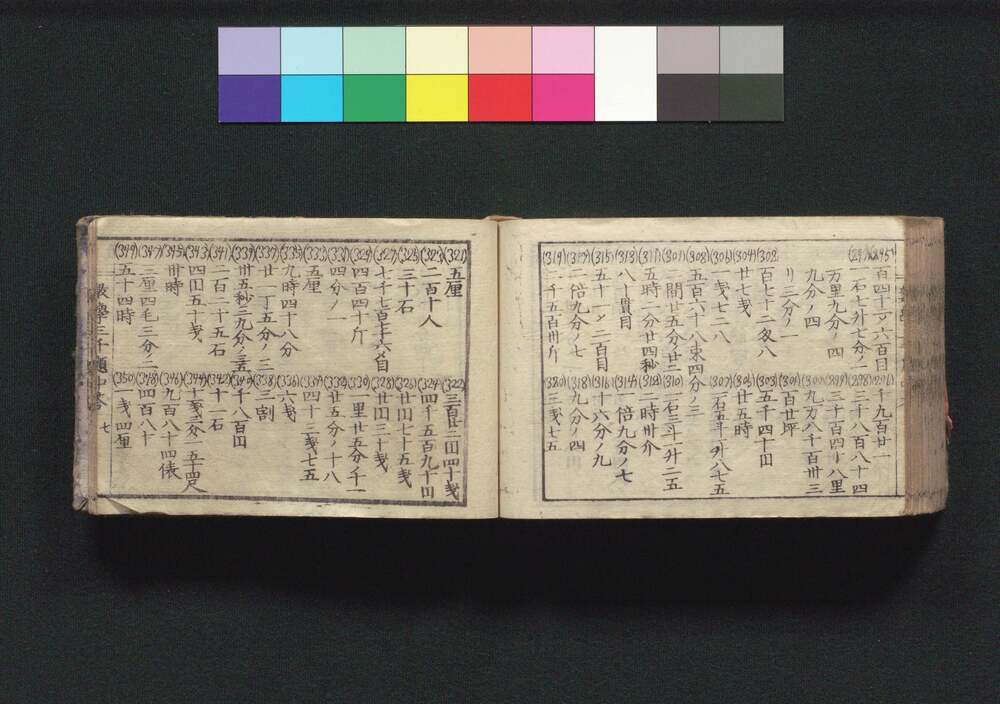 百四十六百目
(296) 千九百廿一
一石七升七分ノ一
(298) 三千八百八十四
万里九分ノ四
(299) 三十百四十八里
九分ノ四
(300) 九万八千百卅三
リ三分ノ一
(301) 百廿坪
(302) 百七十二匁八
(303) 五千四十田
(304) 廿七戋
(305) 廿五時
(306) 一戋七二八
(307) 一石五斗一升八七五
(308) 五百六十八束四分ノ三
(309) 一間廿五分ノ廿二
(310) 一石三斗一升二五
(311) 五時一分廿四秒
(312) 二時卅介
(313) 八十貫目
(314) 一倍九分ノ七
(315) 五十ト二百目
(316) 十六分ノ九
(317) 二倍九分ノ七
(318) 九分ノ四
(319) 一千五百卅斤
(320) 三戋七五
(321) 五厘
(322) 三百廿二田四十戋
(323) 二百十人
(324) 四千五百九十田
(325) 三十石
(326) 廿田七十五戋
(327) 七千七百七十六匁目
(328) 廿田三十戋
(329) 四百四十斤
(330) 一里廿五分千一
(331) 四分ノ一
(332) 廿五分ノ十八
(333) 五厘
(334) 四十三戋七五
(335) 九時四十八分
(336) 六戋
(337) 廿一丁五分ノ三
(338) 三割
(339) 卅五秒
(340) 千八百田
(341) 二百二十五石
(342) 十一石
(343) 四田五十戋
(345) 卅時
(346) 九百八十四俵
(347) 二厘四毛三分ノ二
(348) 四百八十
(349) 五十四時
(350) 一戋四厘
数學三千題中答
七